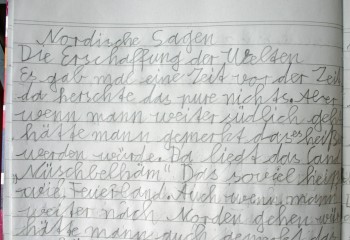 Nordische Sagen
Die Erschaffung der Welten
Es gab mal eine Zeit vor der Zeit
da herschte das pure nichts. Aber
wenn mann weiter südlich geht
hätte mann gemerkt dases heiß
werden würde. Da liegt das land
„Müschbelham" Das soviel heißt
wie Feuerland. Auch wenn mann
weiter nach Norden gehen wü
hätte mann auch gemerkt das